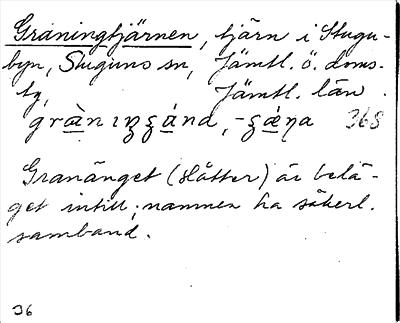 Graningtjärnen, tjärn i Stugu-
byn, Stuguns sn, Jämtl. ö. doms-
ty, Jämtl. län.
368
Granänget (slåtter) är belä-
get intill; namnen ha säkerl.
samband.
36